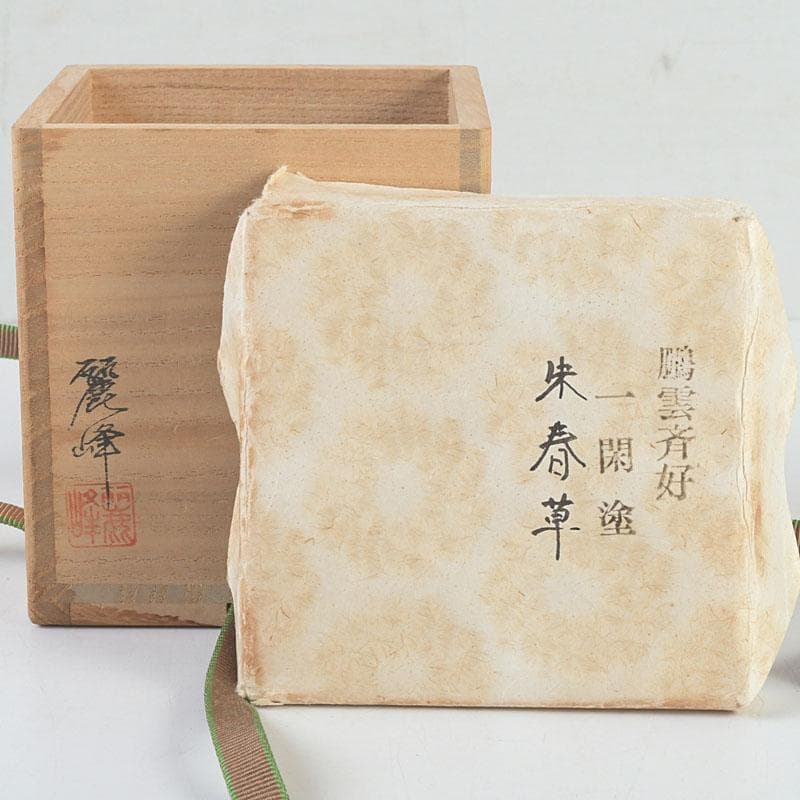 鵬雲斉好
一閑塗
朱春草
麗峰
麗峰